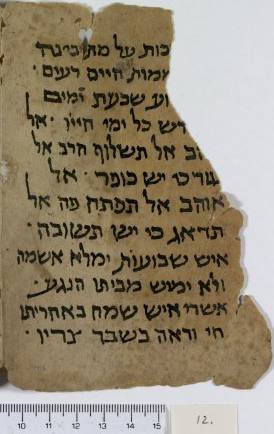 כות על מת כי נחה
ממות חיים רעים ·
וע שבעת ימים
דש כל ימי חייו · אל
הב אל תשלוף חרב אל
גור כי יש כופר · אל
אוהב אל תפתח פה אל
תדאג כי יש תשובה ·
איש שבועות ימלא אשמה
ולא ימיש מביתו הנגע ·
אשרי איש שמח באחריתו
חי וראה בשבר צריו ·
10 11 12 13 14 15
12.